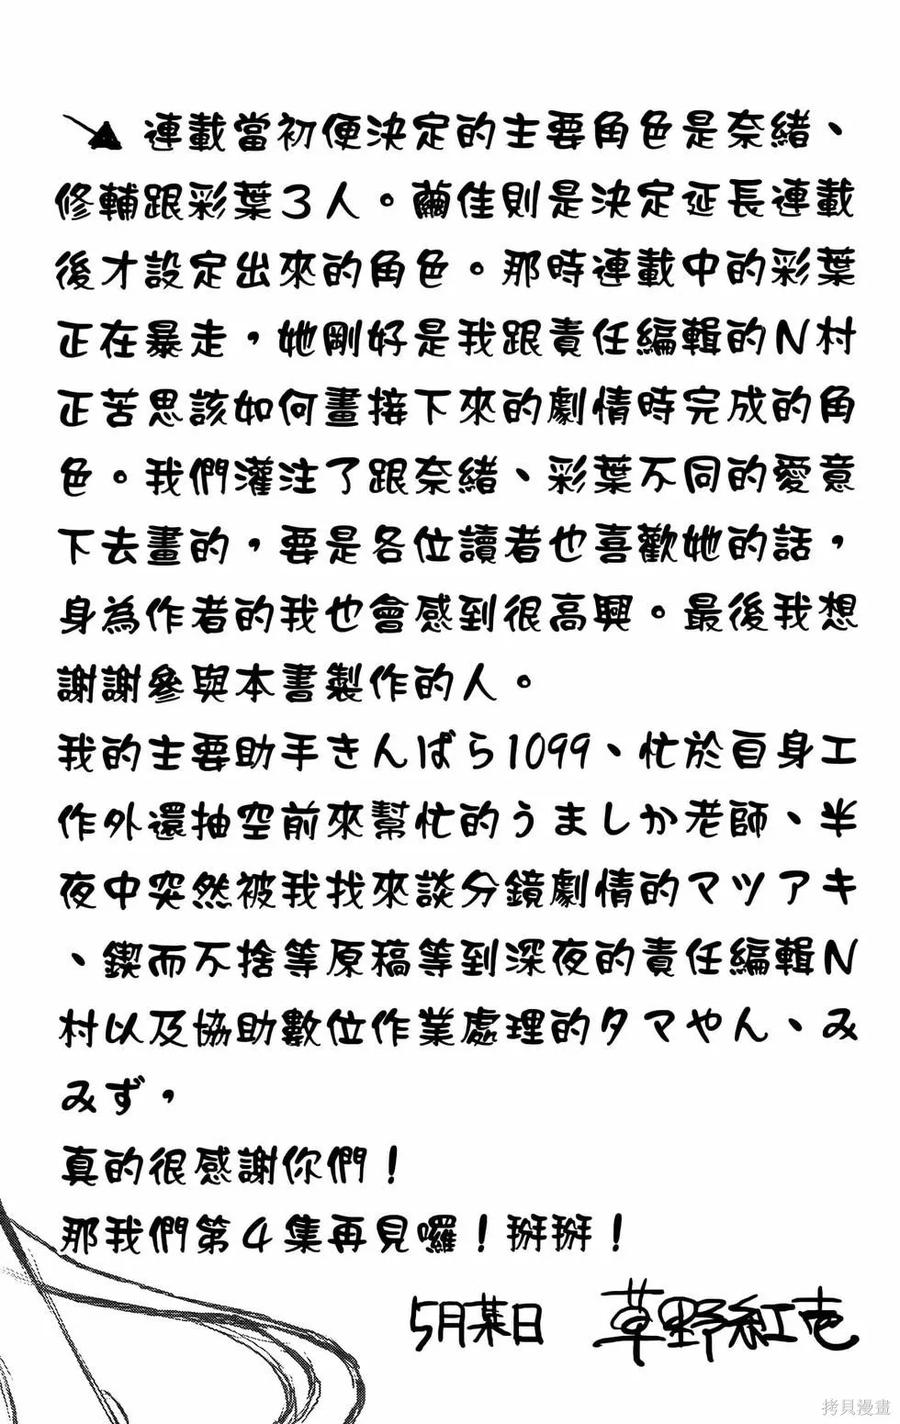 連載當初便決定的主要角色是奈緒、
修輔跟彩葉３人。繭佳則是決定延長連載
後才設定出來的角色。那時連載中的彩葉
正在暴走，她剛好是我跟責任編輯的Ｎ村
正苦思該如何畫接下來的劇情時完成的角
色。我們灌注了跟奈緒、彩葉不同的愛意
下去畫的，要是各位讀者也喜歡她的話，
身為作者的我也會感到很高興。最後我想
謝謝參與本書製作的人。
我的主要助手きんばら1099、忙於自身工
作外還抽空前來幫忙的うましか老師、半
夜中突然被我找來談分鏡劇情的マツアキ
、鍥而不捨等原稿等到深夜的責任編輯Ｎ
村以及協助數位作業處理的タマやん、み
みず，
真的很感謝你們！
那我們第４集再見囉！掰掰！
5月某日 草野紅壱
拷貝漫畫